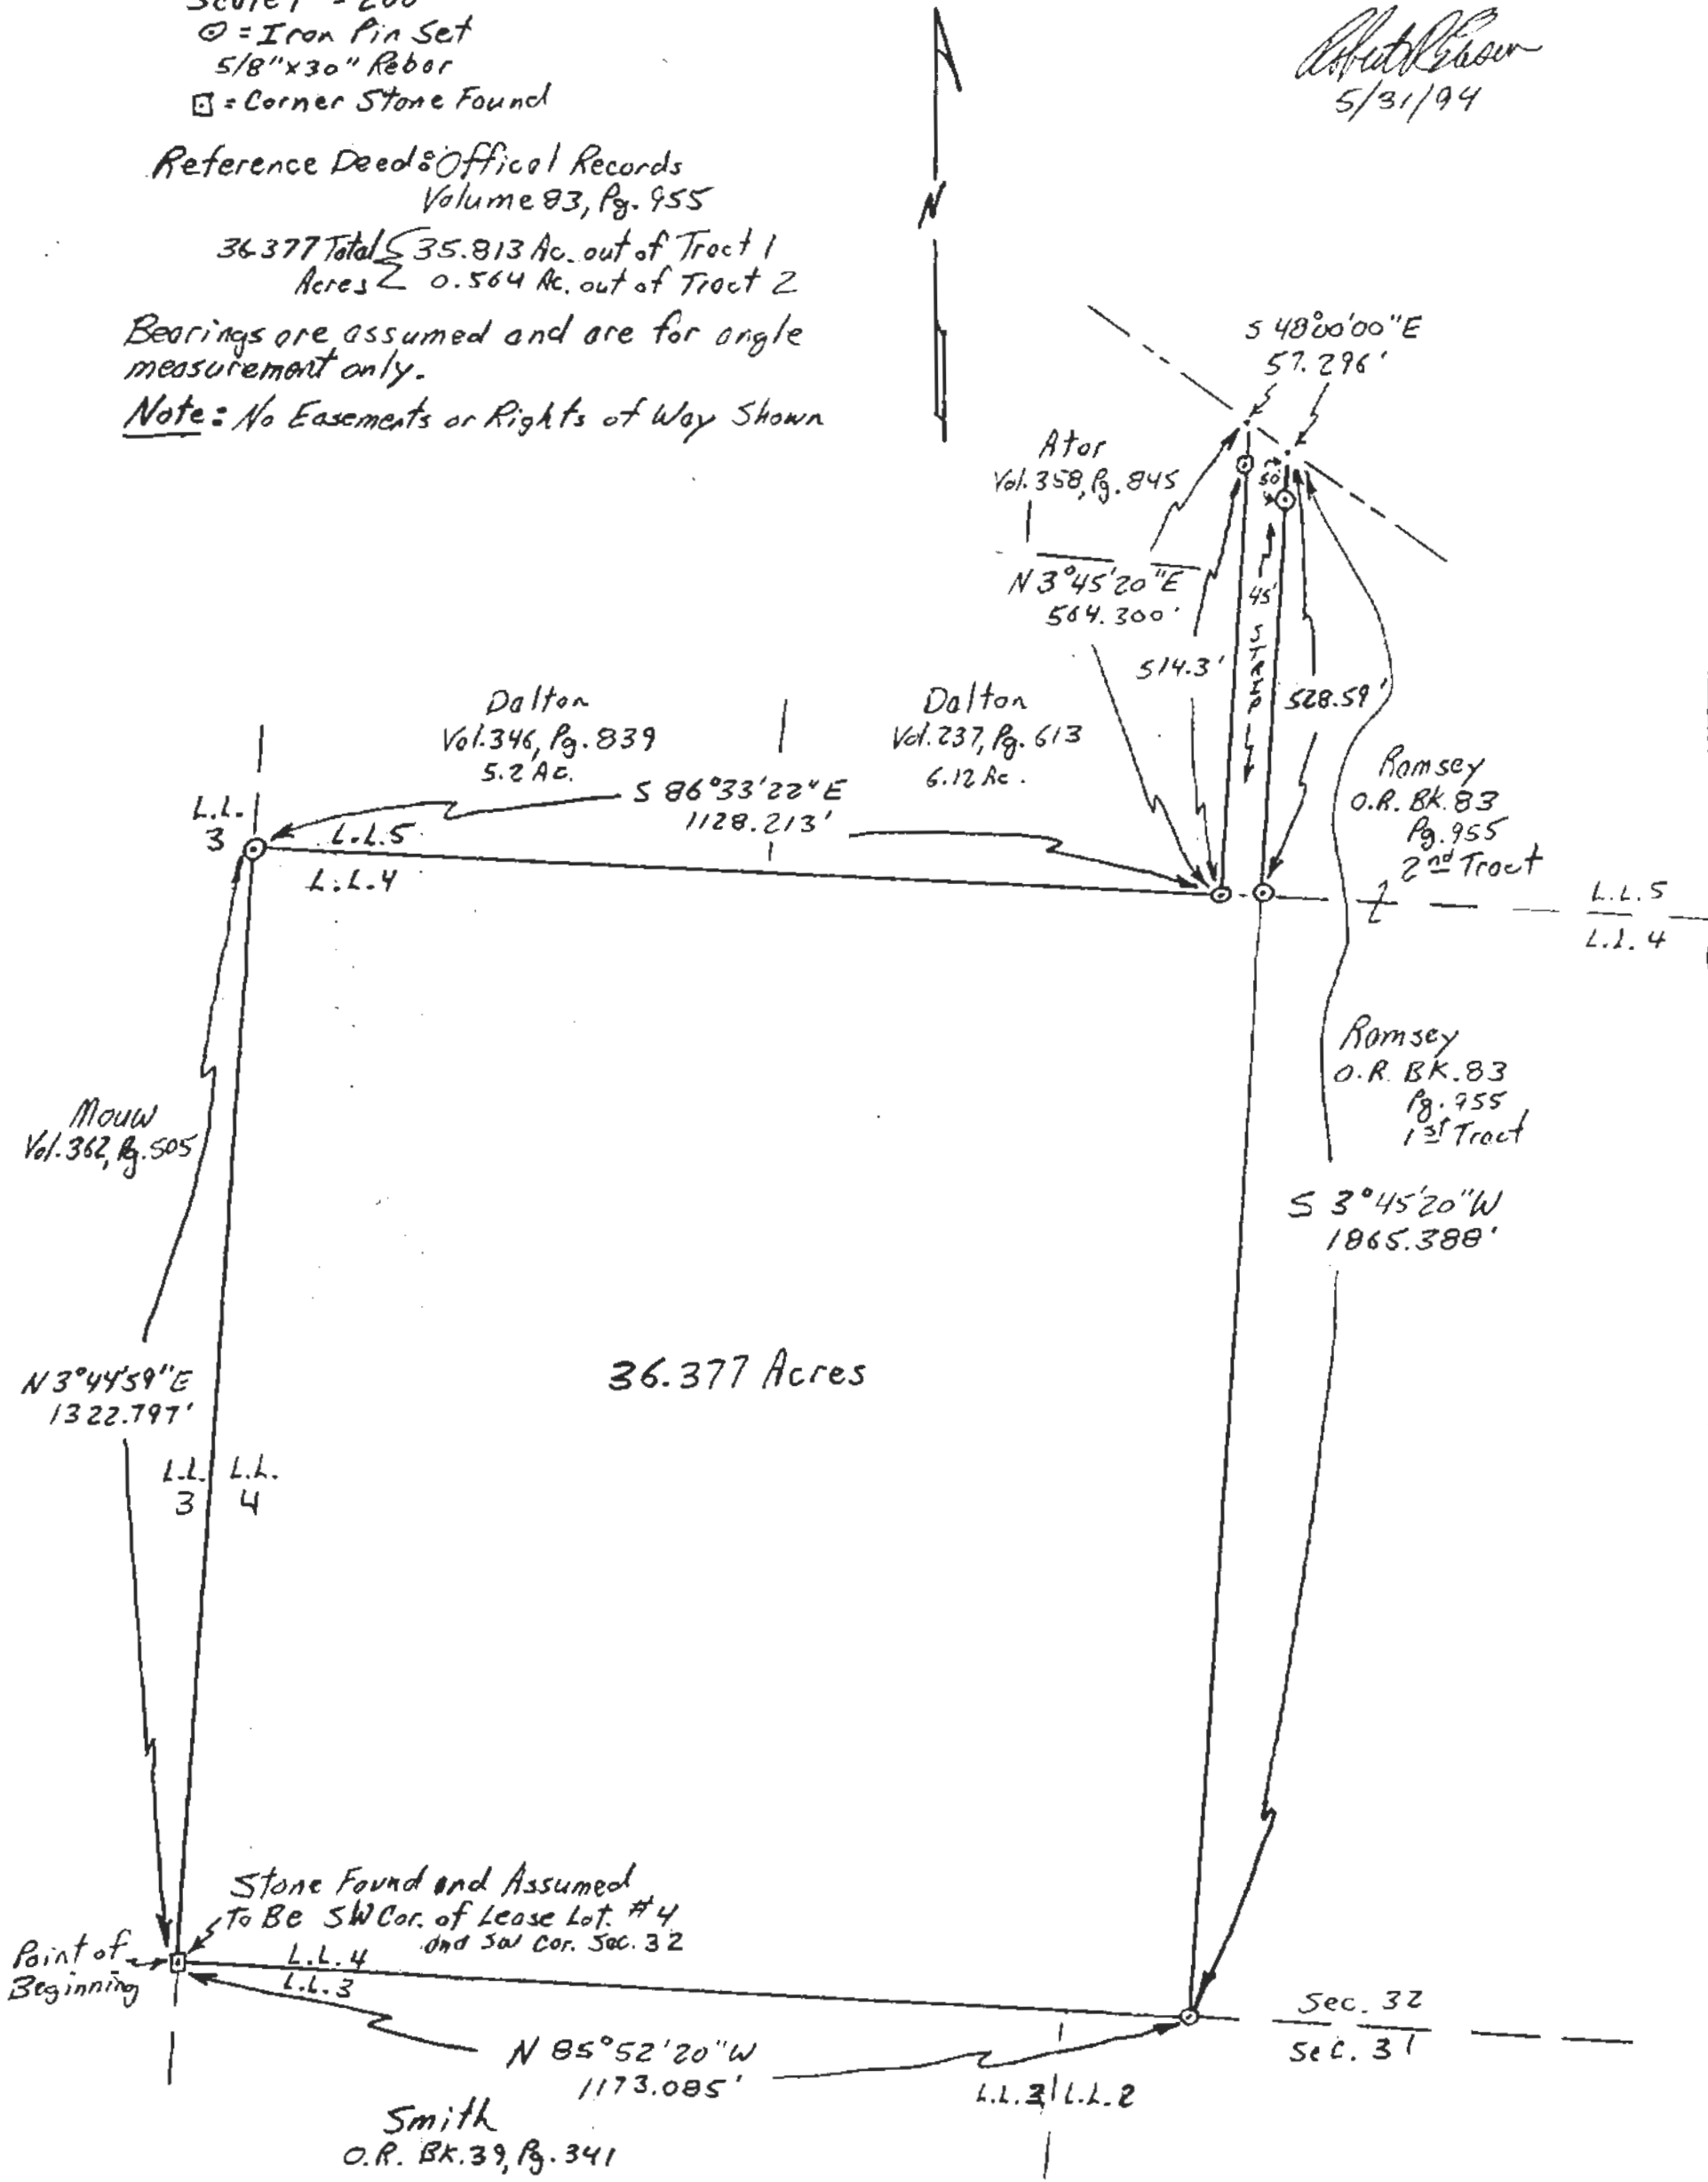 Scale 1" = 200'
⊙ = Iron Pin Set
5/8" x 30" Rebar
⊡ = Corner Stone Found
Reference Deed: Offical Records
Volume 83, Pg. 955
36.377 Total { 35.813 Ac. out of Tract 1
Acres { 0.564 Ac. out of Tract 2
Bearings are assumed and are for angle
measurement only.
Note: No Easements or Rights of Way Shown
N
5/31/94
S 48°00'00"E
57.296'
Ator
Vol. 358, Pg. 845
50'
N 3°45'20"E
564.300'
45'
STRIP
514.3'
528.59'
Dalton
Vol. 346, Pg. 839
5.2 Ac.
Dalton
Vol. 237, Pg. 613
6.12 Ac.
S 86°33'22"E
1128.213'
Ramsey
O.R. BK. 83
Pg. 955
2nd Tract
L.L.
3
L.L.5
L.L.4
L.L.5
L.L.4
Ramsey
O.R. BK. 83
Pg. 955
1st Tract
Mouw
Vol. 362, Pg. 505
S 3°45'20"W
1865.388'
36.377 Acres
N 3°44'59"E
1322.797'
L.L. L.L.
3 4
Stone Found and Assumed
To Be SW Cor. of Lease Lot. #4
and SW Cor. Sec. 32
Point of
Beginning
L.L.4
L.L.3
Sec. 32
Sec. 31
N 85°52'20"W
1173.085'
L.L.3 L.L.2
Smith
O.R. BK. 39, Pg. 341